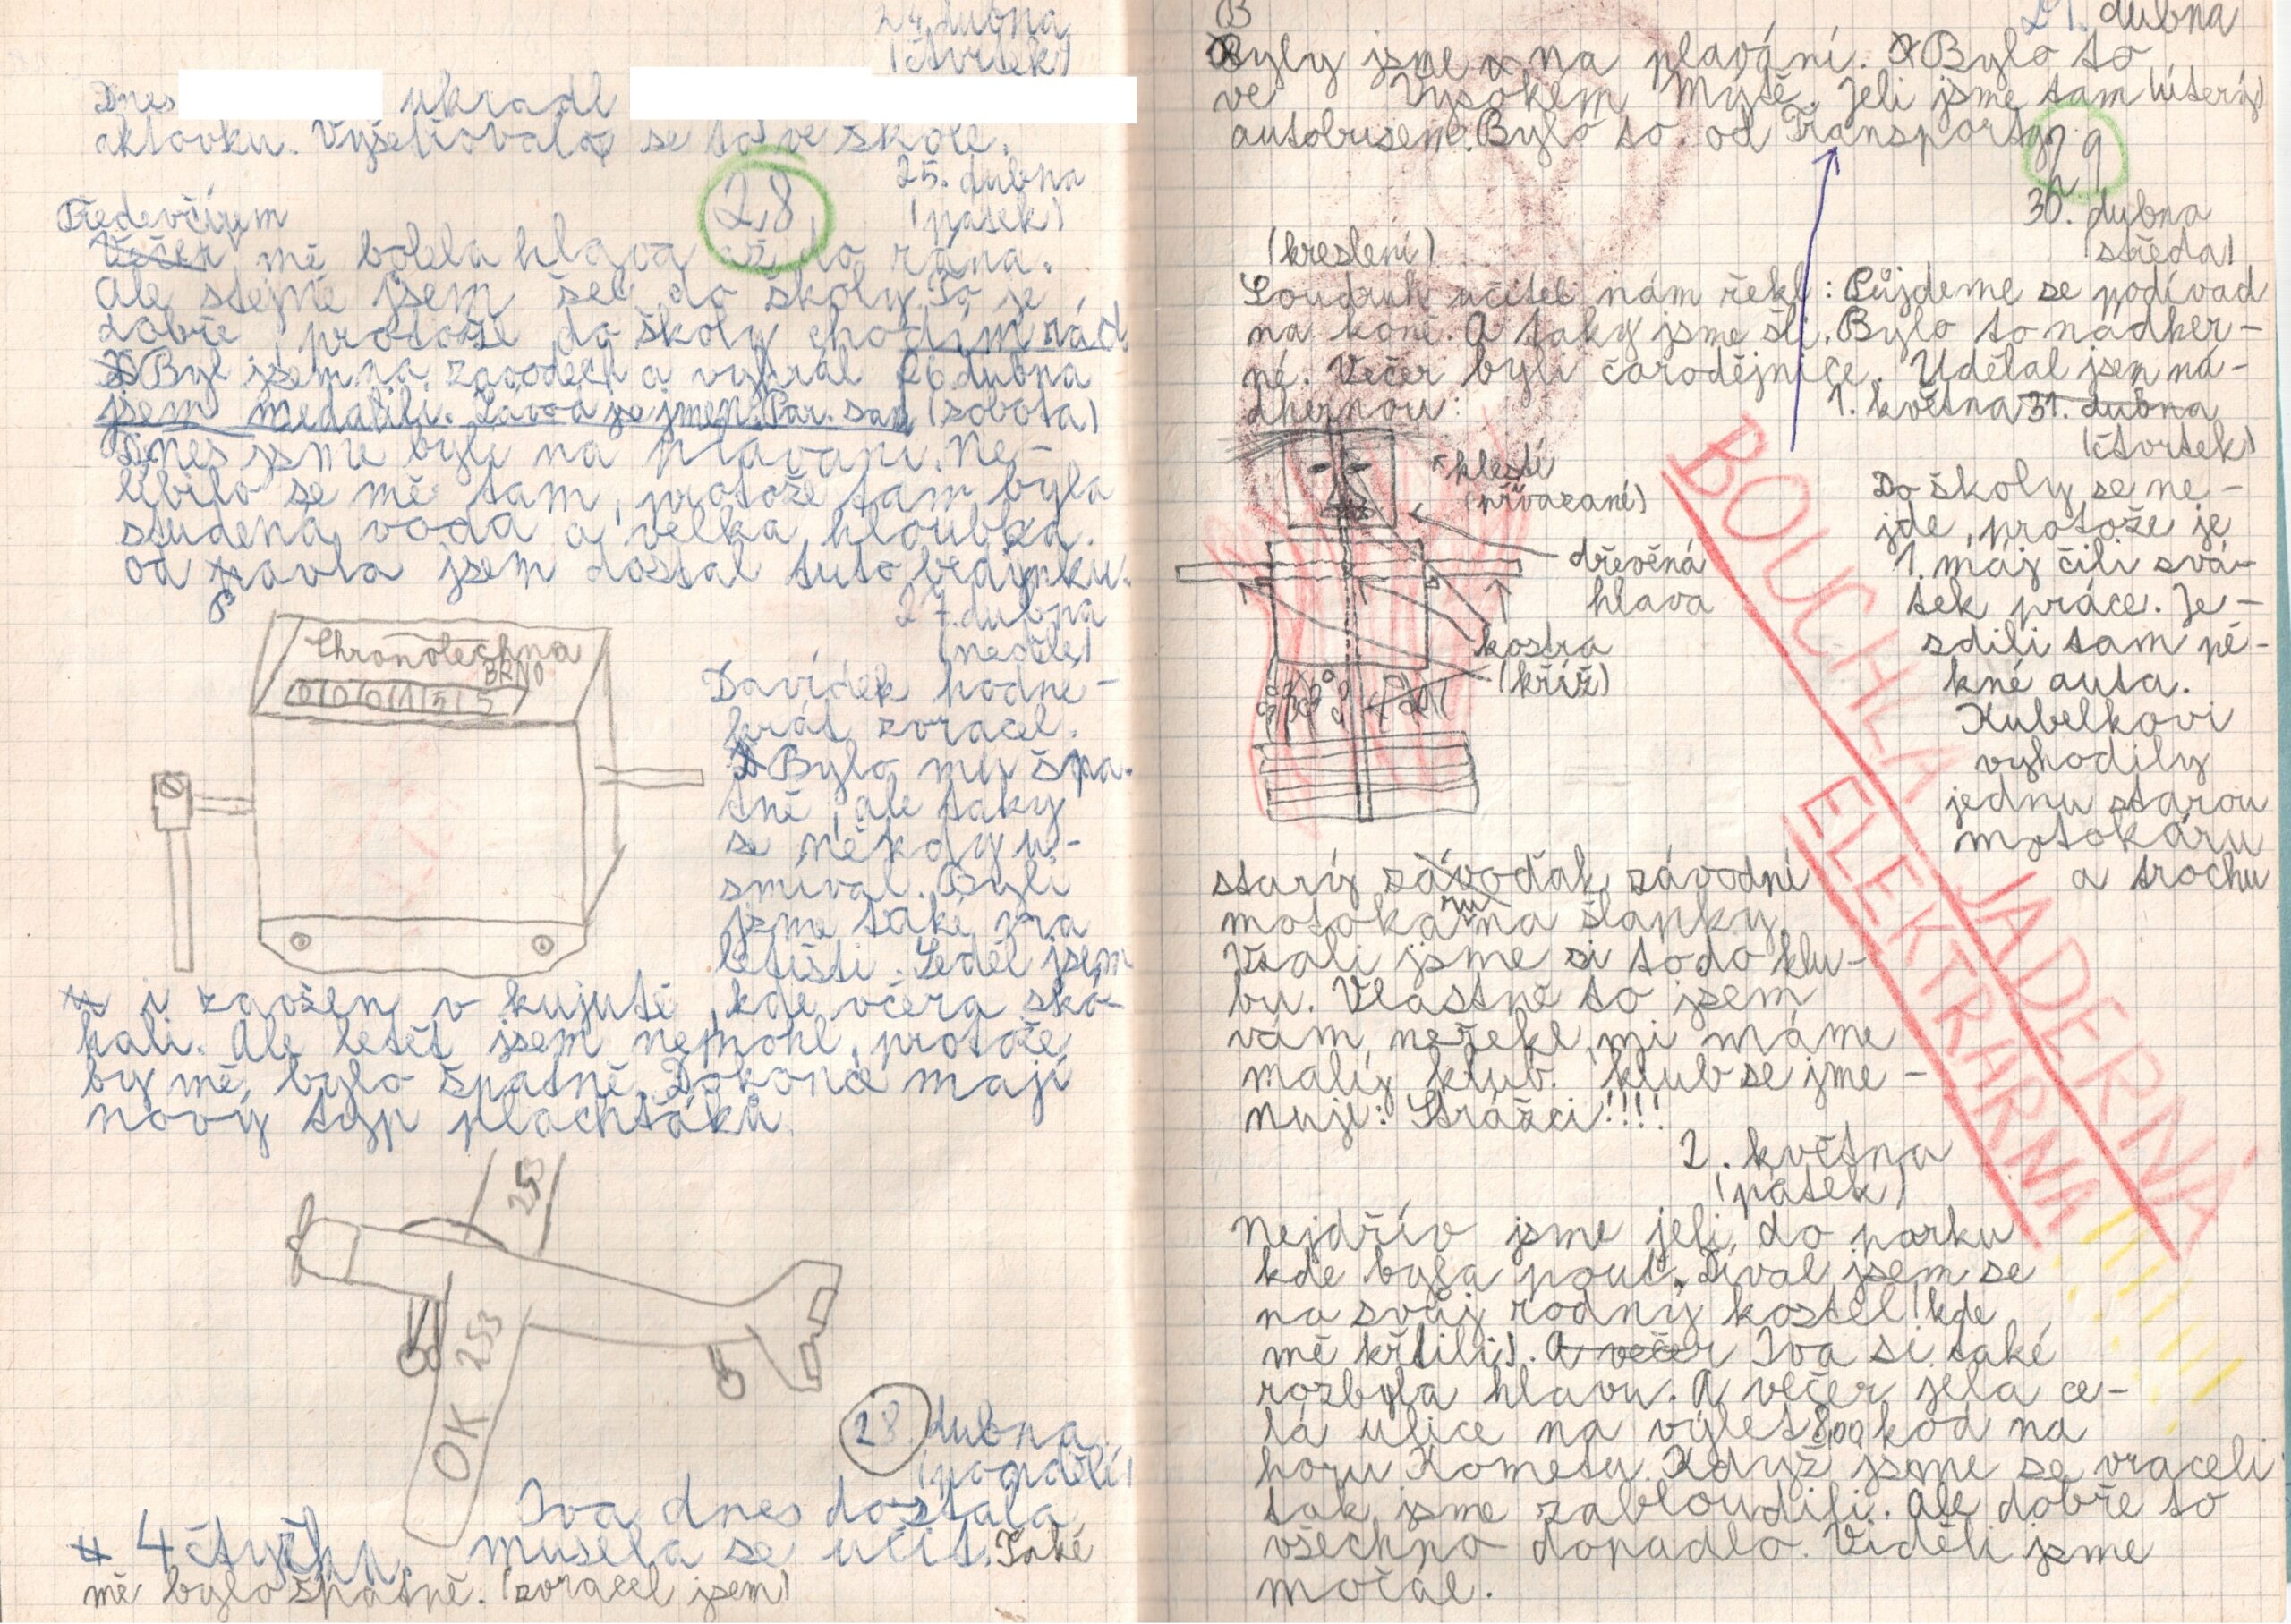 24. dubna
(čtvrtek)
Dnes ukradl
aktovku. Vyšetřovalo se to ve škole.
25. dubna
(pátek)
28.
Předevčírem
Večer mě bolela hlava až do rána.
Ale stejně jsem šel do školy. To je
dobře, protože do školy chodím rád.
Byl jsem na závodech a vyhrál 26. dubna
jsem medaili. Závod se jmen. Par. sam (sobota)
Dnes jsme byli na plavání. Ne-
líbilo se mě tam, protože tam byla
studená voda a velká hloubka.
od Pavla jsem dostal tuto bedýnku:
27. dubna
(neděle)
Chronotechna
BRNO
000155
Davídek hodně-
krát zvracel.
Bylo mu špa-
tně, ale taky
se někdy u-
smíval. Byli
jsme také na
letišti. Seděl jsem
i zavřen v kujutě, kde včera ská-
kali. Ale letět jsem nemohl, protože
by mě bylo špatně. Dokonce mají
nový typ plachťáků.
253
OK 253
28. dubna
(pondělí)
Iva dnes dostala
4 čtyřku. musela se učit. Také
mě bylo špatně. (zvracel jsem)
B
29. dubna
Byly jsme na plavání. Bylo to
ve Vysokém Mýtě. Jeli jsme tam (úterý)
autobusem. Bylo to od Transporty.
29
30. dubna
(středa)
(kreslení)
Soudruh učitel nám řekl: Půjdeme se podívad
na koně. A taky jsme šli. Bylo to nádher-
né. Večer byli čarodějnice. Udělal jsem ná-
dhernou:
1. května 31. dubna
(čtvrtek)
klestí
(přivázané)
dřevěná
hlava
kostra
(kříž)
Do školy se ne-
jde, protože je
1. máj čili svá-
tek práce. Je-
sdili tam pě-
kné auta.
Kubelkovi
vyhodily
jednu starou
motokáru
a trochu
starý závoďák závodní
motokáru na šlapky.
Vzali jsme si to do klu-
bu. Vlastně to jsem
vám neřekl, mi máme
malíý klub. klub se jme-
nuje: Strážci!!!!
BOUCHLA JADERNÁ
ELEKTRÁRNA
2. května
(pátek)
Nejdřív jsme jeli do parku
kde byla pouť. Díval jsem se
na svůj rodný kostel (kde
mě křtili). A večer Iva si také
rozbyla hlavu. A večer jela ce-
lá ulice na výlet 800 kod na
horu Kometu. Když jsme se vraceli
tak jsme zabloudili. Ale dobře to
všechno dopadlo. Viděli jsme
močál.